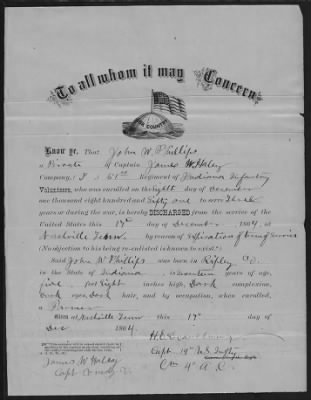 To all whom it may Concern
OUR COUNTRY
Know ye, That John W. Phillips
a Private of Captain James W. Haley
Company, 51st Regiment of Indiana Infantry
Volunteers, who was enrolled on the Eight day of December
one thousand eight hundred and Sixty one to serve Three
years or during the war, is hereby DISCHARGED from the service of the
United States this 17th day of December, 1864, at
Nashville Tenn by reason of Expiration of term of service
(No objection to his being re-enlisted is known to exist.)
Said John W Phillips was born in Ripley Co.
in the State of Indiana, is years of age,
five feet Eight inches high, Dark complexion,
Dark eyes, Dark hair, and by occupation, when enrolled,
a Farmer
Given at Nashville Tenn this 17th day of
Dec 1864.
James W. Haley
Capt
Capt 19th U.S. Infty
4th A.C.